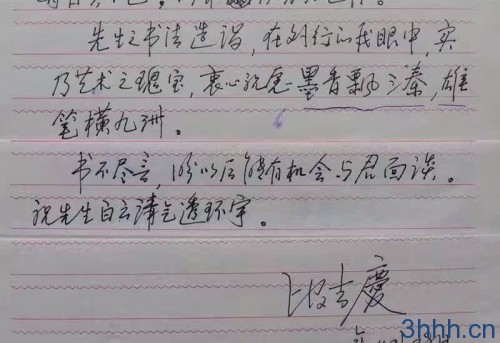 先生之书法造诣,在外行的我眼中,实
乃艺术之瑰宝,衷心祝愿墨香飘三秦,雄
笔横九洲。
书不尽言,盼以后能有机会与君面谈。
祝先生白云清气透环宇。
段吉庆
3hhh.cn